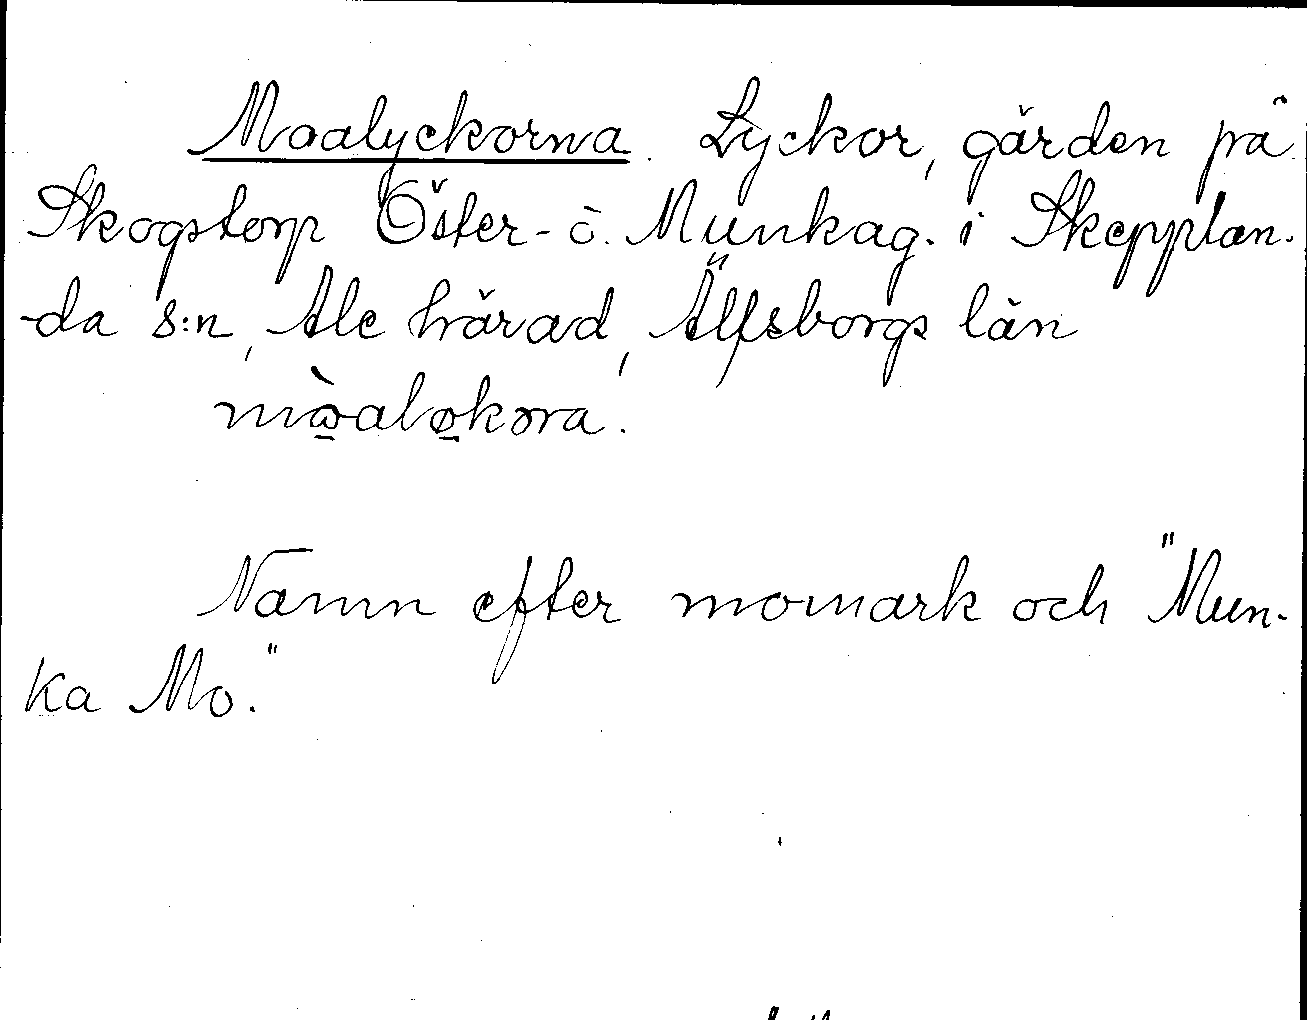 Moalyckorna. Lyckor, gärden på
Skogstorp Öster- o. Munkag. i Skepplan-
-da s:n, Ale härad, Älfsborgs län
mòaløkora.
Namn efter momark och "Mun-
ka Mo."